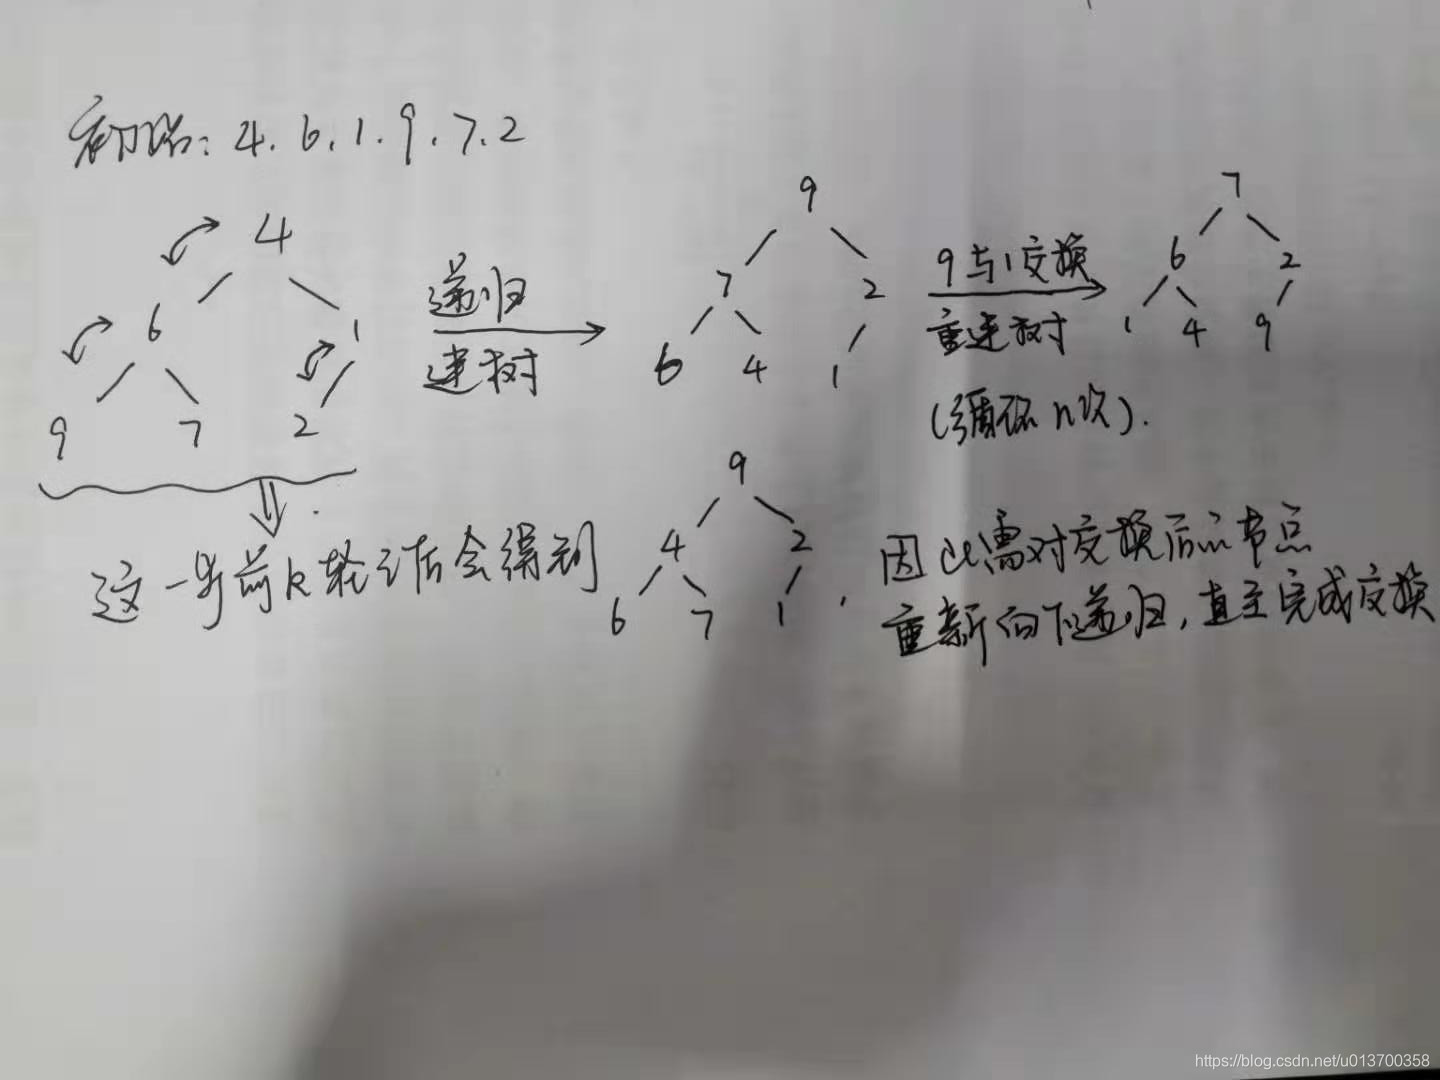 初始: 4. 6. 1. 9. 7. 2
4
6 1
9 7 2
递归
建树
9
7 2
6 4 1
9与1交换
重建树
(循环n次).
7
6 2
1 4 9
这一步前k轮之后会得到
9
4 2
6 7 1
因此需对交换后的节点
重新向下递归,直至完成交换
https://blog.csdn.net/u013700358